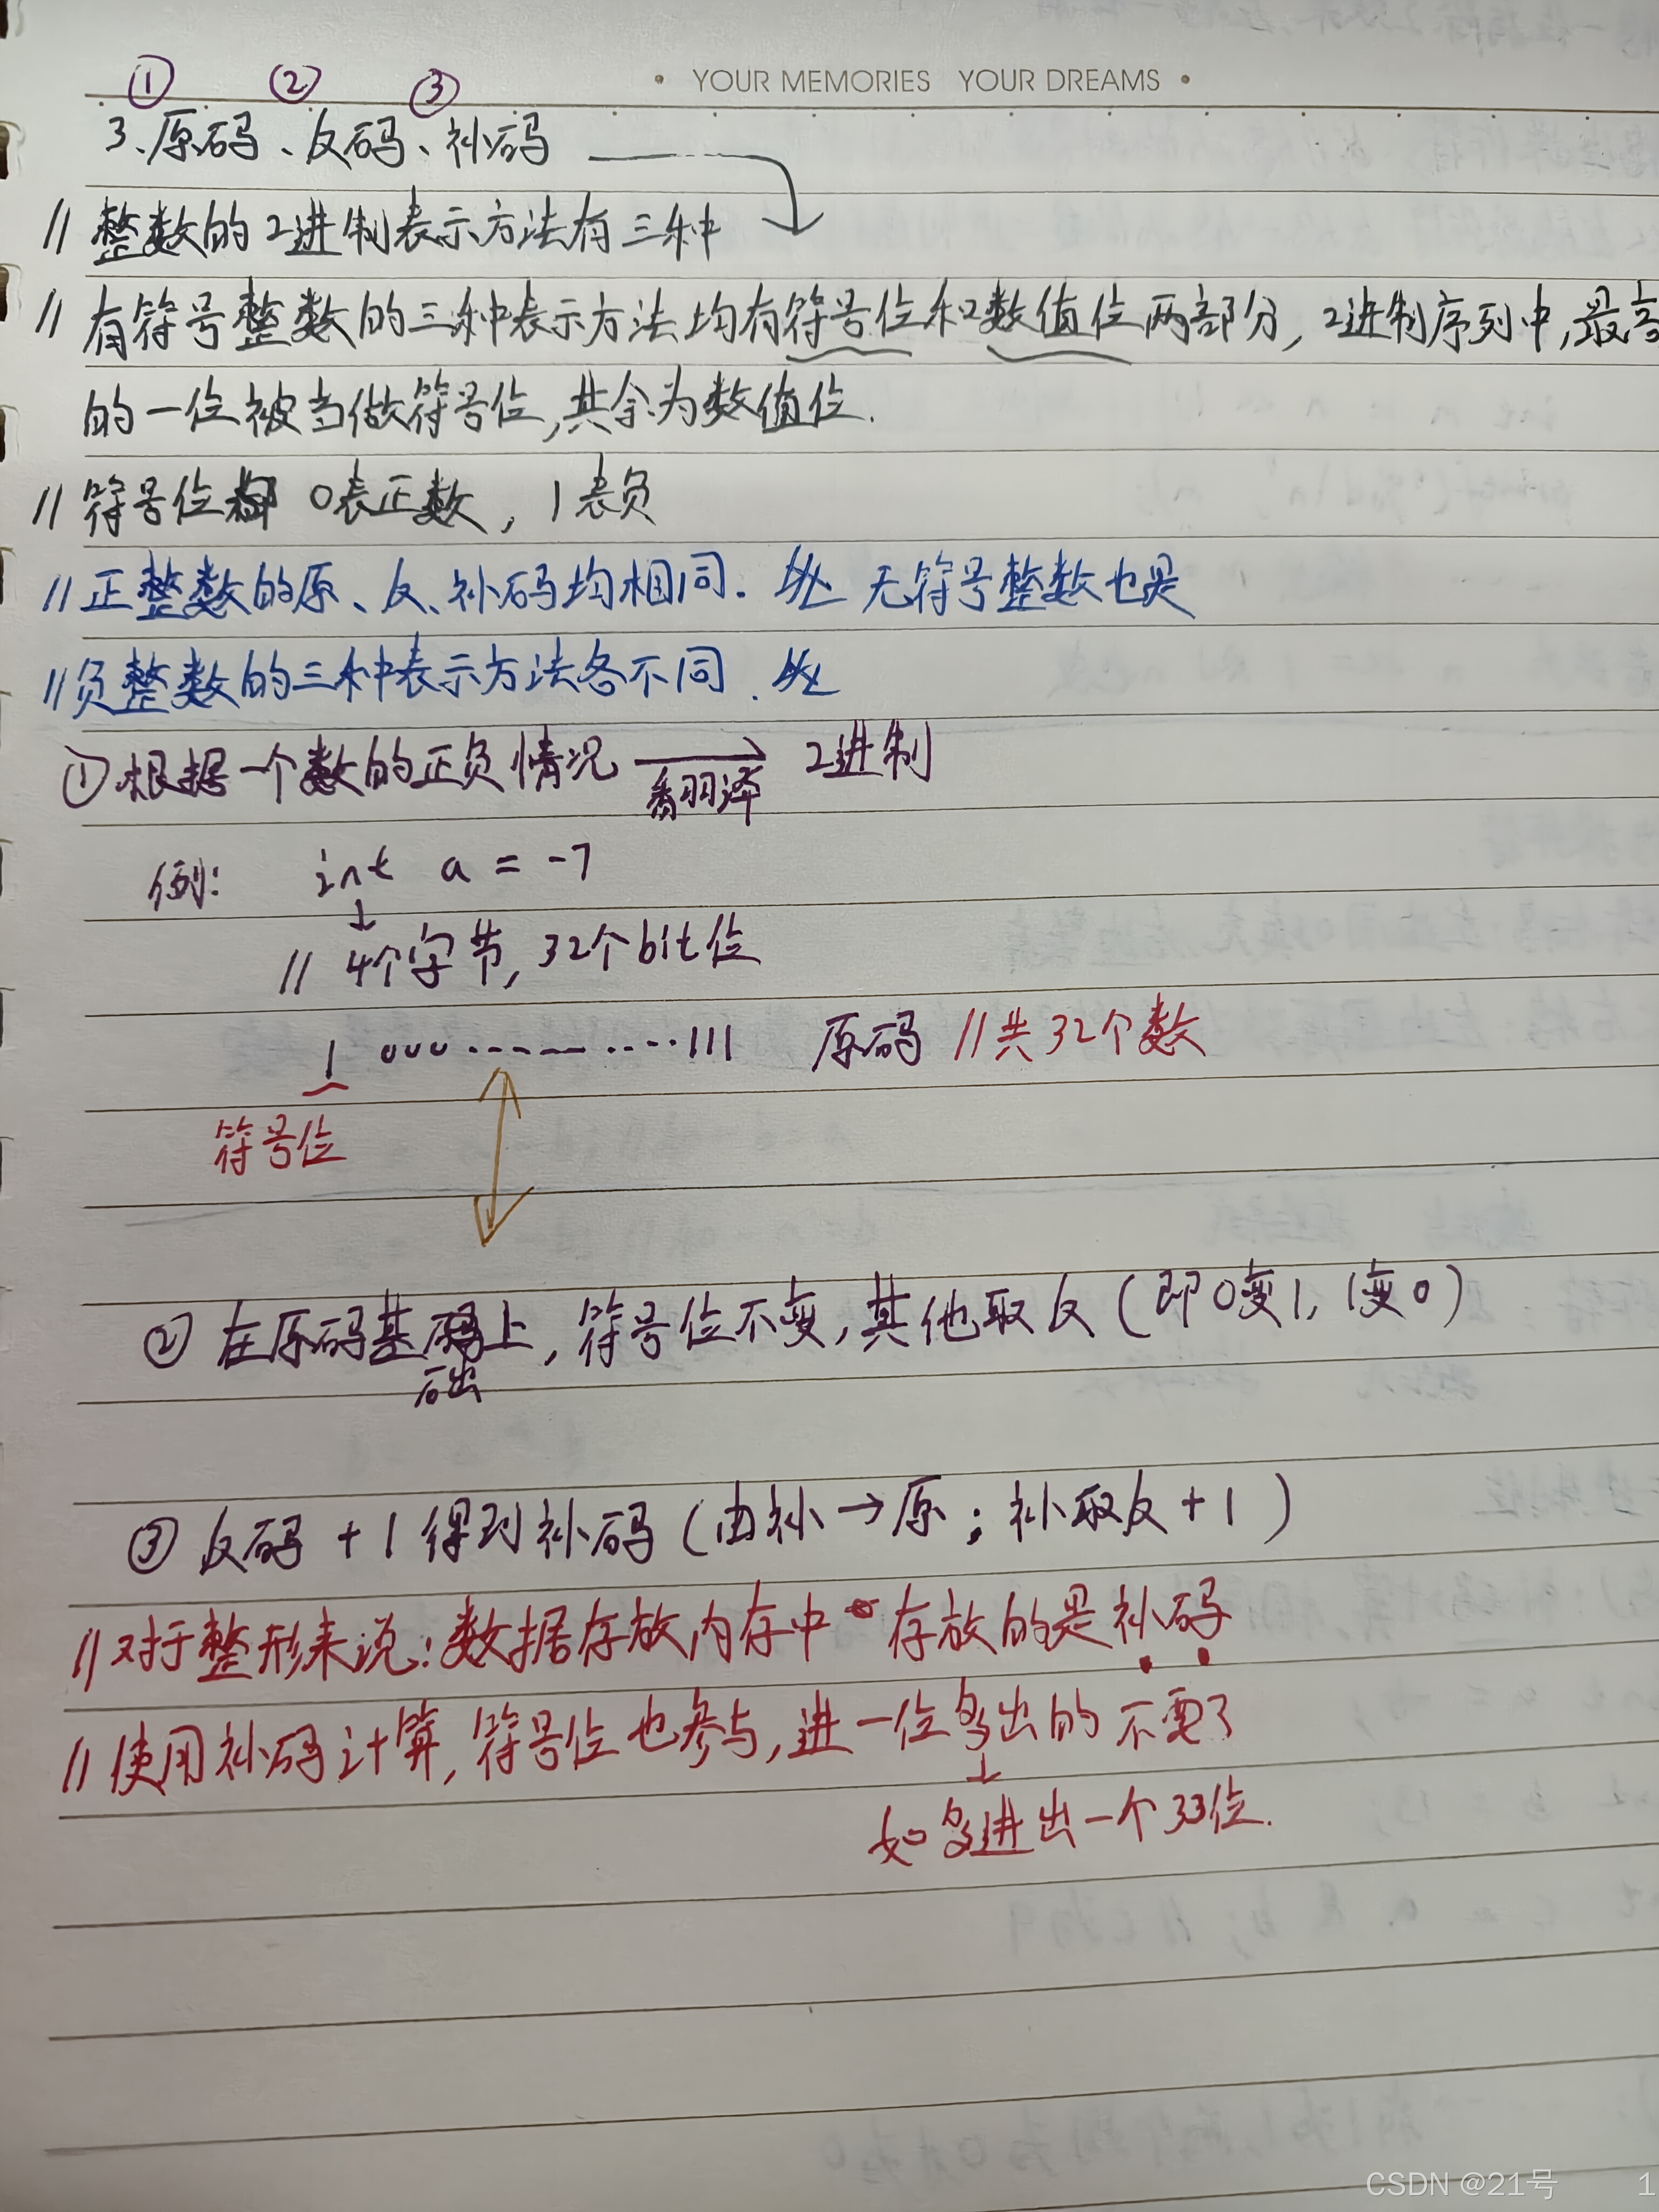 ① ② ③
• YOUR MEMORIES YOUR DREAMS •
3、原码、反码、补码
// 整数的2进制表示方法有三种
// 有符号整数的三种表示方法均有符号位和数值位两部分, 2进制序列中,最高
的一位被当做符号位,其余为数值位.
// 符号位都 0表正数, 1表负
// 正整数的原、反、补码均相同. 无符号整数也是
// 负整数的三种表示方法各不同.
① 根据一个数的正负情况 翻译 → 2进制
例: int a = -7
↓
// 4个字节, 32个bit位
1 000 ············111 原码 //共32个数
符号位
② 在原码基上,符号位不变,其他取反(即0变1, 1变0)
础
③ 反码+1得到补码(由补→原; 补取反+1)
// 对于整形来说: 数据存放内存中 存放的是补码
// 使用补码计算, 符号位也参与, 进一位多出的不要了
↓
如多进出一个33位.
CSDN @21号 1